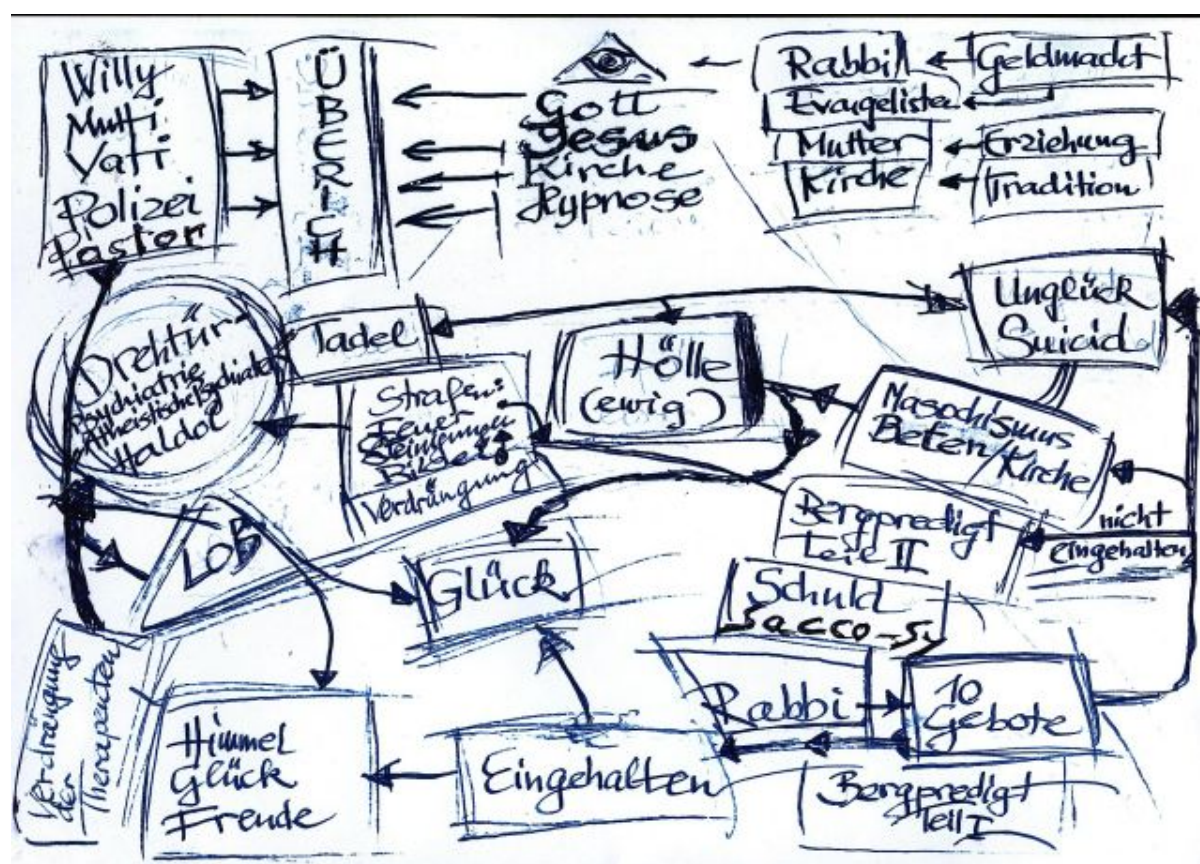 Willy
Mutti
Vati
Polizei
Pastor
ÜBERICH
Gott
Jesus
Kirche
Hypnose
Rabbi
Evangelisten
Mutter
Kirche
Geldmacht
Erziehung
Tradition
Drehtür-
Psychiatrie
Atheistische Psychiater
Haldol
Tadel
Strafen:
Feuer
Steinigungen
Bilder
Verdrängung
Hölle
(ewig)
Unglück
Suicid
Masochismus
Beten/Kirche
Bergpredigt
Teil II
nicht
eingehalten
LOB
Glück
Schuld
Sacco-Sy
Rabbi
10
Gebote
Bergpredigt
Teil I
Eingehalten
Himmel
Glück
Freude
Verdrängung
der
Therapeuten